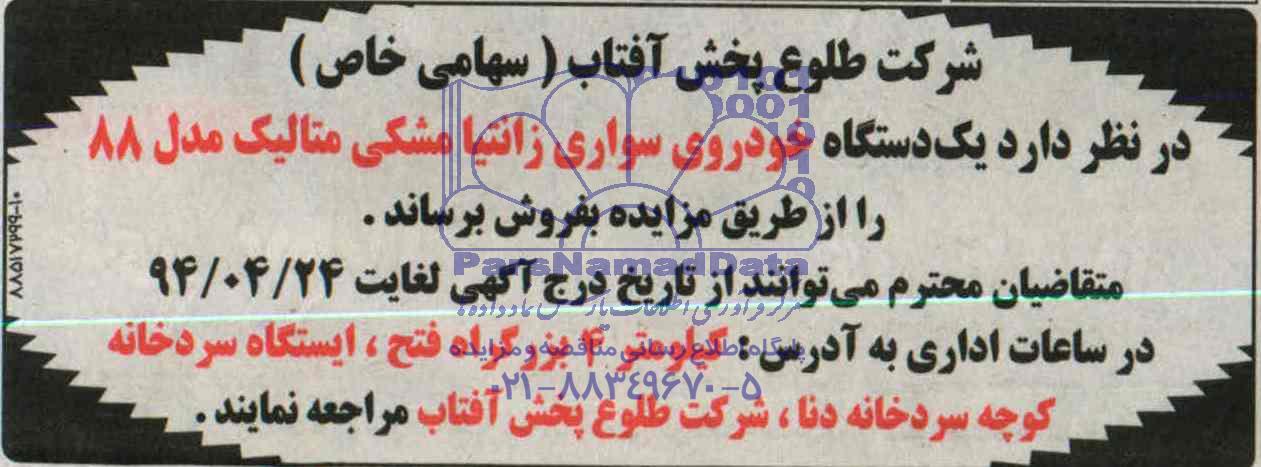 شرکت طلوع پخش آفتاب ( سهامی خاص )
در نظر دارد یک‌دستگاه خودروی سواری زانتیا مشکی متالیک مدل ۸۸
را از طریق مزایده بفروش برساند .
ParsNamadData
متقاضیان محترم می‌توانند از تاریخ درج آگهی لغایت ۹۴/۰۴/۲۴
در ساعات اداری به آدرس : کیلومتر بزرگراه فتح ، ایستگاه سردخانه
پایگاه اطلاع رسانی مناقصه و مزایده
۰۲۱-۸۸۳۴۹۶۷۰-۵
کوچه سردخانه دنا ، شرکت طلوع پخش آفتاب مراجعه نمایند .